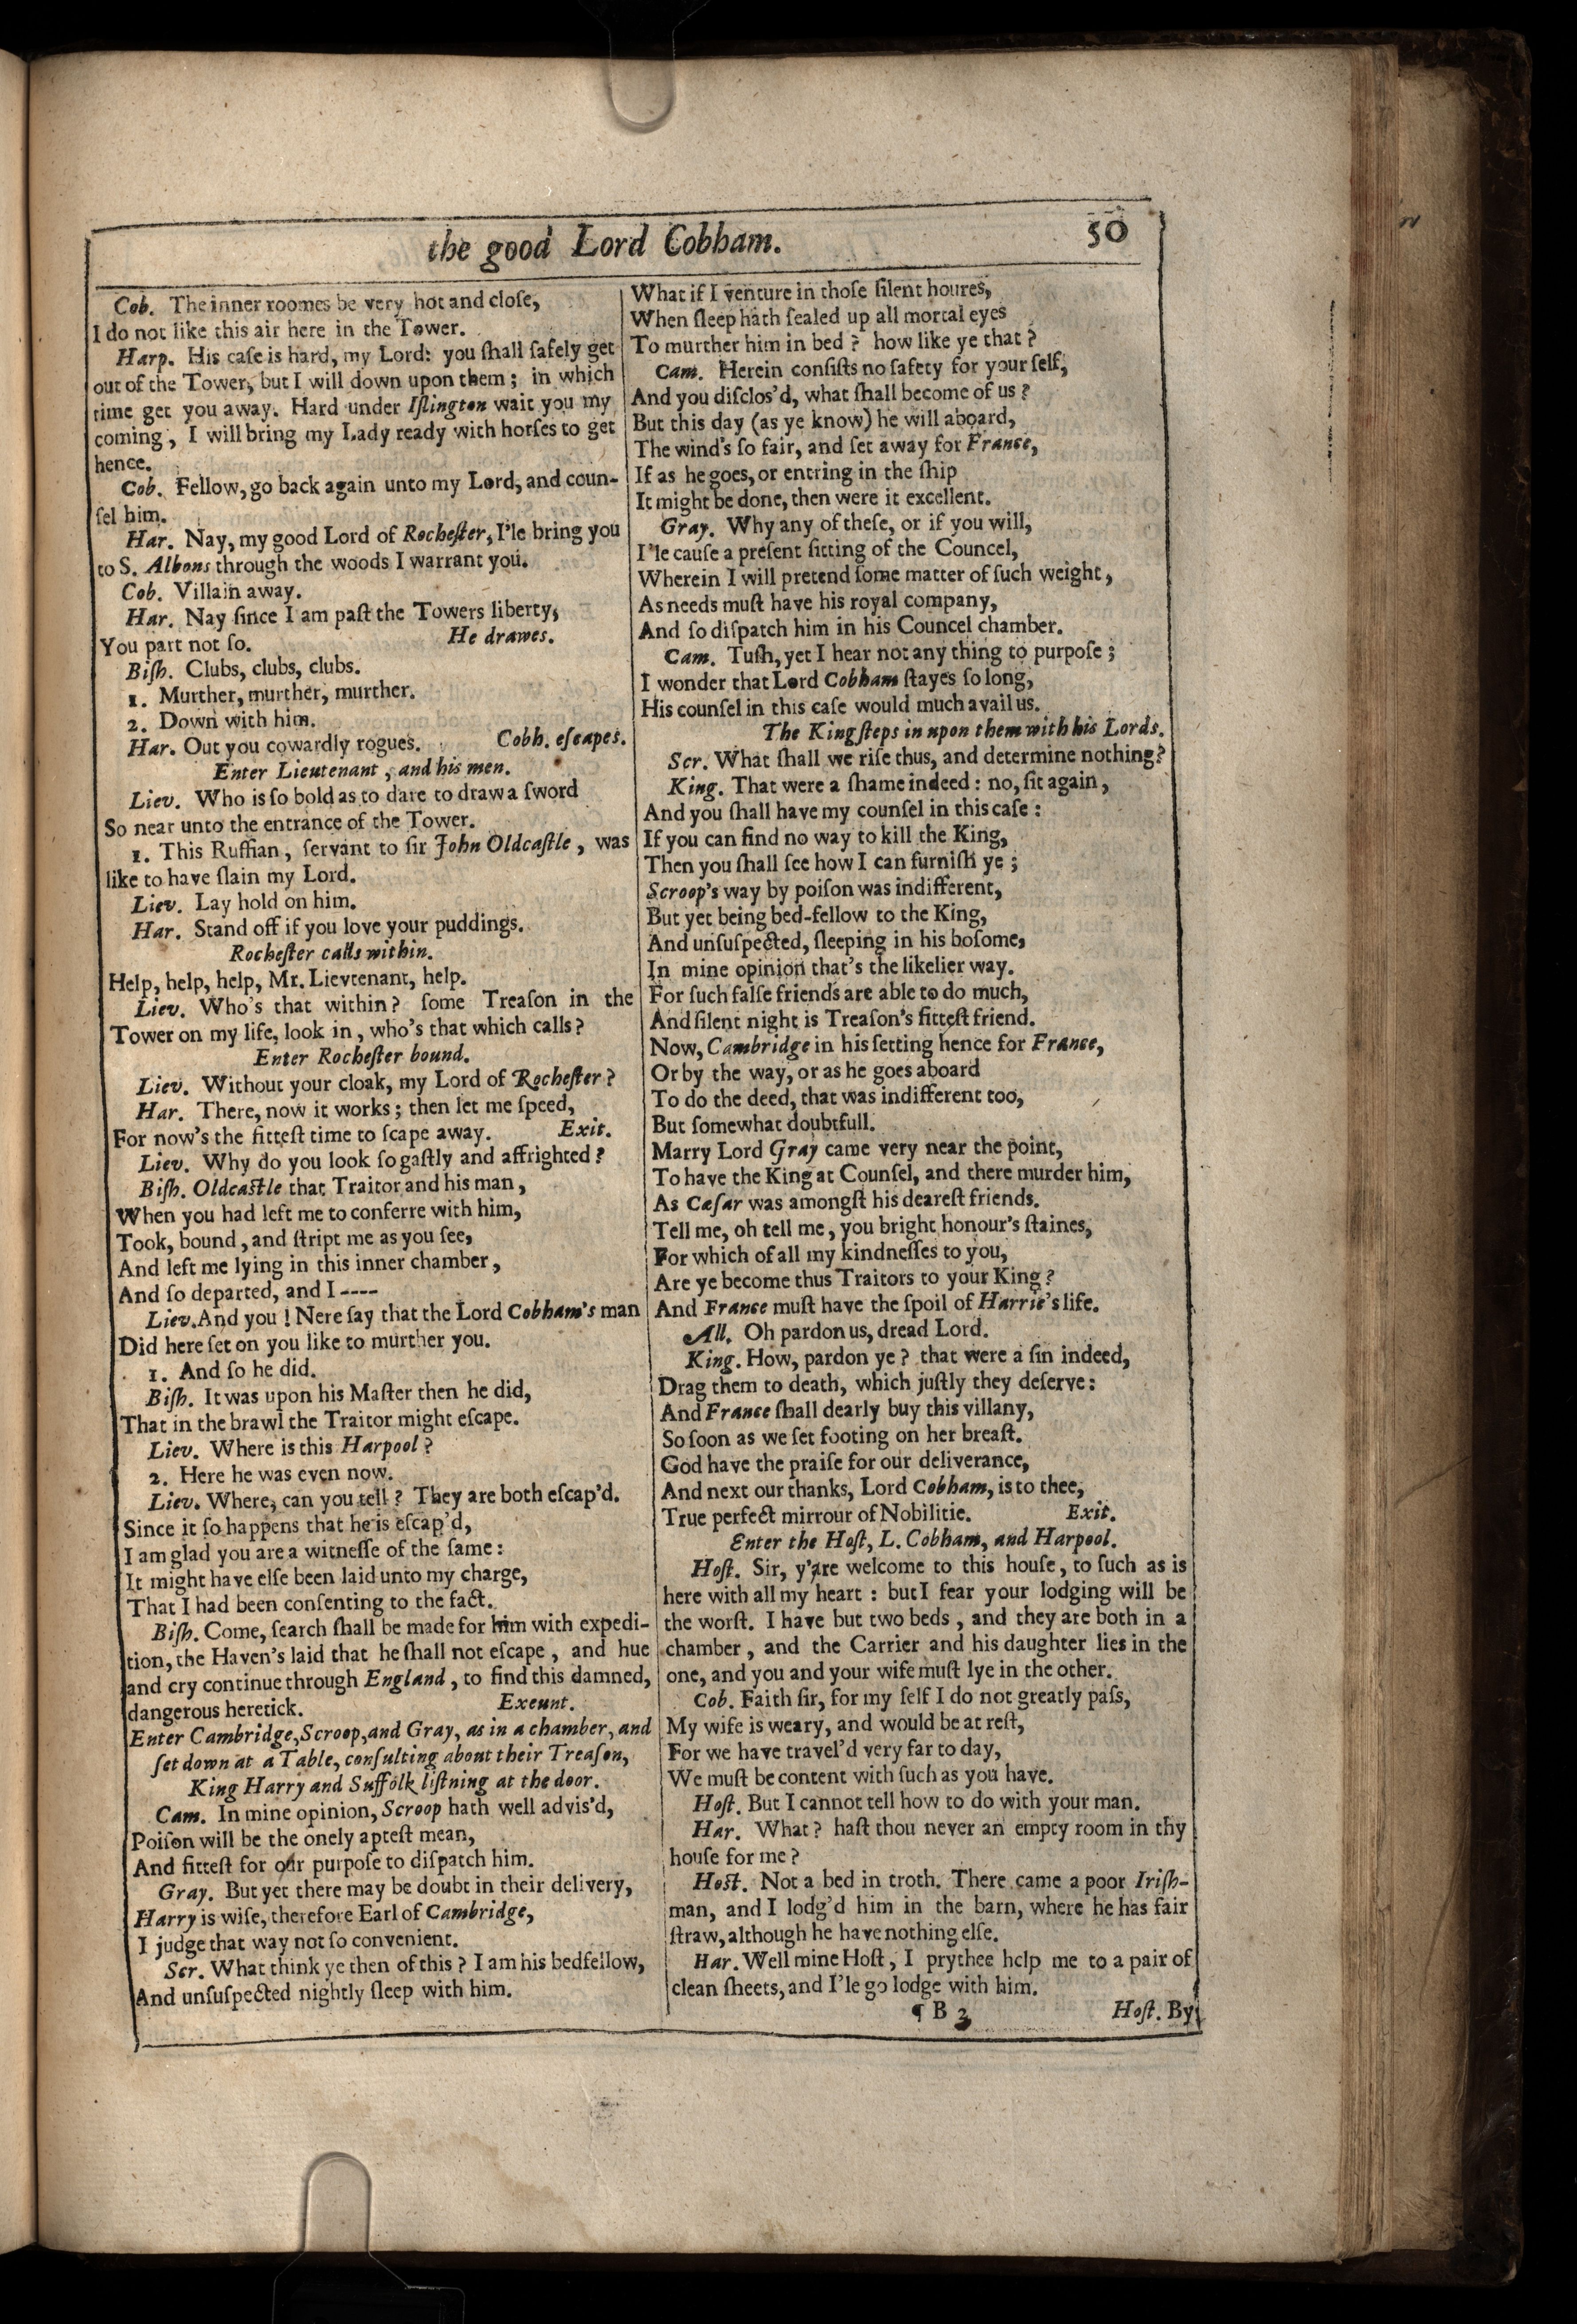 the good Lord Cobham.
50
Cob. The inner roomes be very hot and cloſe,
I do not like this air here in the Tower.
Harp. His caſe is hard, my Lord: you ſhall ſafely get
out of the Tower, but I will down upon them; in which
time get you away. Hard under Iſlington wait you my
coming, I will bring my Lady ready with horſes to get
hence.
Cob. Fellow, go back again unto my Lord, and coun-
ſel him.
Har. Nay, my good Lord of Rocheſter, I'le bring you
to S. Albons through the woods I warrant you.
Cob. Villain away.
Har. Nay ſince I am paſt the Towers liberty,
You part not ſo. He drawes.
Biſh. Clubs, clubs, clubs.
1. Murther, murther, murther.
2. Down with him.
Har. Out you cowardly rogues. Cobh. eſcapes.
Enter Lieutenant, and his men.
Liev. Who is ſo bold as to dare to draw a ſword
So near unto the entrance of the Tower.
1. This Ruffian, ſervant to ſir John Oldcaſtle, was
like to have ſlain my Lord.
Liev. Lay hold on him.
Har. Stand off if you love your puddings.
Rocheſter calls within.
Help, help, help, Mr. Lievtenant, help.
Liev. Who's that within? ſome Treaſon in the
Tower on my life, look in, who's that which calls?
Enter Rocheſter bound.
Liev. Without your cloak, my Lord of Rocheſter?
Har. There, now it works; then let me ſpeed,
For now's the fitteſt time to ſcape away. Exit.
Liev. Why do you look ſo gaſtly and affrighted?
Biſh. Oldcaſtle that Traitor and his man,
When you had left me to conferre with him,
Took, bound, and ſtript me as you ſee,
And left me lying in this inner chamber,
And ſo departed, and I ----
Liev. And you! Nere ſay that the Lord Cobham's man
Did here ſet on you like to murther you.
1. And ſo he did.
Biſh. It was upon his Maſter then he did,
That in the brawl the Traitor might eſcape.
Liev. Where is this Harpool?
2. Here he was even now.
Liev. Where, can you tell? They are both eſcap'd.
Since it ſo happens that he is eſcap'd,
I am glad you are a witneſſe of the ſame:
It might have elſe been laid unto my charge,
That I had been conſenting to the fact.
Biſh. Come, ſearch ſhall be made for him with expedi-
tion, the Haven's laid that he ſhall not eſcape, and hue
and cry continue through England, to find this damned,
dangerous heretick. Exeunt.
Enter Cambridge, Scroop, and Gray, as in a chamber, and
ſet down at a Table, conſulting about their Treaſon,
King Harry and Suffolk liſtning at the door.
Cam. In mine opinion, Scroop hath well advis'd,
Poiſon will be the onely apteſt mean,
And fitteſt for our purpoſe to diſpatch him.
Gray. But yet there may be doubt in their delivery,
Harry is wiſe, therefore Earl of Cambridge,
I judge that way not ſo convenient.
Scr. What think ye then of this? I am his bedfellow,
And unſuſpected nightly ſleep with him.
What if I venture in thoſe ſilent houres,
When ſleep hath ſealed up all mortal eyes
To murther him in bed? how like ye that?
Cam. Herein conſiſts no ſafety for your ſelf,
And you diſclos'd, what ſhall become of us?
But this day (as ye know) he will aboard,
The wind's ſo fair, and ſet away for France,
If as he goes, or entring in the ſhip
It might be done, then were it excellent.
Gray. Why any of theſe, or if you will,
I'le cauſe a preſent ſitting of the Councel,
Wherein I will pretend ſome matter of ſuch weight,
As needs muſt have his royal company,
And ſo diſpatch him in his Councel chamber.
Cam. Tuſh, yet I hear not any thing to purpoſe;
I wonder that Lord Cobham ſtayes ſo long,
His counſel in this caſe would much avail us.
The King ſteps in upon them with his Lords.
Scr. What ſhall we riſe thus, and determine nothing?
King. That were a ſhame indeed: no, ſit again,
And you ſhall have my counſel in this caſe:
If you can find no way to kill the King,
Then you ſhall ſee how I can furniſh ye;
Scroop's way by poiſon was indifferent,
But yet being bed-fellow to the King,
And unſuſpected, ſleeping in his boſome,
In mine opinion that's the likelier way.
For ſuch falſe friends are able to do much,
And ſilent night is Treaſon's fitteſt friend.
Now, Cambridge in his ſetting hence for France,
Or by the way, or as he goes aboard
To do the deed, that was indifferent too,
But ſomewhat doubtfull.
Marry Lord Gray came very near the point,
To have the King at Counſel, and there murder him,
As Cæſar was amongſt his deareſt friends.
Tell me, oh tell me, you bright honour's ſtaines,
For which of all my kindneſſes to you,
Are ye become thus Traitors to your King?
And France muſt have the ſpoil of Harrie's life.
All. Oh pardon us, dread Lord.
King. How, pardon ye? that were a ſin indeed,
Drag them to death, which juſtly they deſerve:
And France ſhall dearly buy this villany,
So ſoon as we ſet footing on her breaſt.
God have the praiſe for our deliverance,
And next our thanks, Lord Cobham, is to thee,
True perfect mirrour of Nobilitie. Exit.
Enter the Hoſt, L. Cobham, and Harpool.
Hoſt. Sir, y'are welcome to this houſe, to ſuch as is
here with all my heart: but I fear your lodging will be
the worſt. I have but two beds, and they are both in a
chamber, and the Carrier and his daughter lies in the
one, and you and your wife muſt lye in the other.
Cob. Faith ſir, for my ſelf I do not greatly paſs,
My wife is weary, and would be at reſt,
For we have travel'd very far to day,
We muſt be content with ſuch as you have.
Hoſt. But I cannot tell how to do with your man.
Har. What? haſt thou never an empty room in thy
houſe for me?
Hoſt. Not a bed in troth. There came a poor Iriſh-
man, and I lodg'd him in the barn, where he has fair
ſtraw, although he have nothing elſe.
Har. Well mine Hoſt, I prythee help me to a pair of
clean ſheets, and I'le go lodge with him.
¶ B 3 Hoſt. By